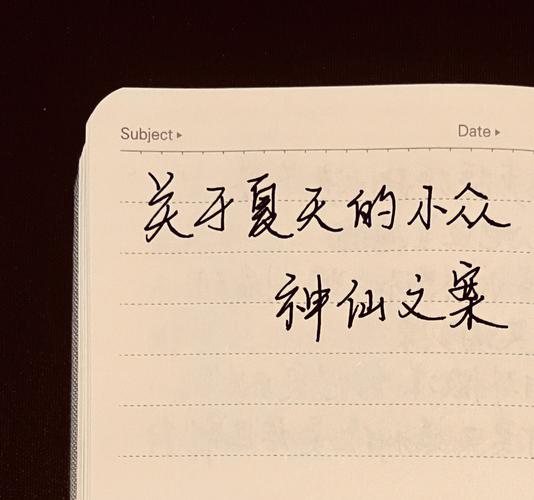 Subject▸ Date▸
关于夏天的小众
神仙文案